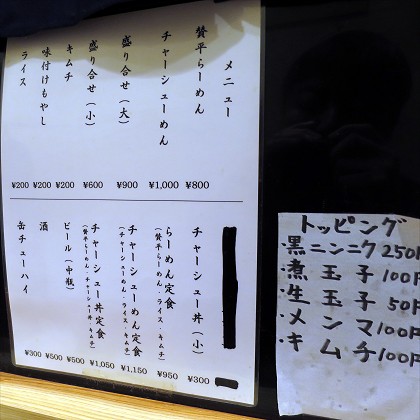 メニュー
贊平らーめん ¥800
チャーシューめん ¥1,000
盛り合せ（大） ¥900
盛り合せ（小） ¥600
キムチ ¥200
味付けもやし ¥200
ライス ¥200
チャーシュー丼（小） ¥300
らーめん定食 ¥950
（贊平らーめん・ライス・キムチ）
チャーシューめん定食 ¥1,150
（チャーシューめん・ライス・キムチ）
チャーシュー丼定食 ¥1,050
（贊平らーめん・チャーシュー丼・キムチ）
ビール（中瓶） ¥500
酒 ¥500
缶チューハイ ¥300
トッピング
黒ニンニク 250円
煮玉子 100円
生玉子 50円
メンマ 100円
キムチ 100円